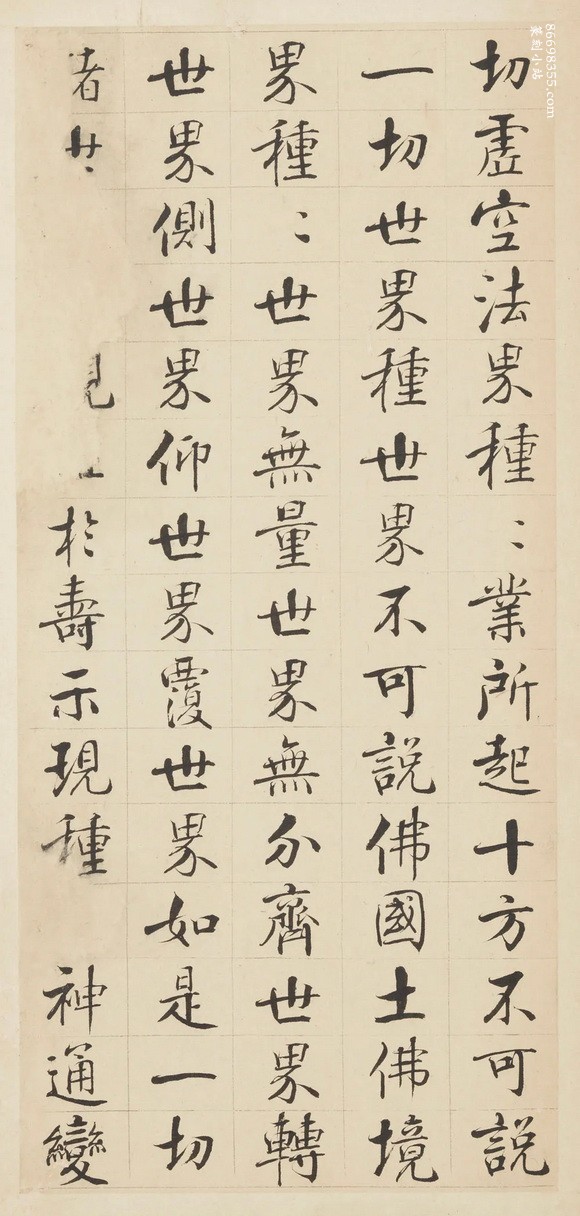 切虛空法界種〻業所起十方不可說
一切世界種世界不可說佛國土佛境
界種〻世界無量世界無分齊世界轉
世界側世界仰世界覆世界如是一切
者 於壽示現種 神通變
86698355.com
篆刻小站